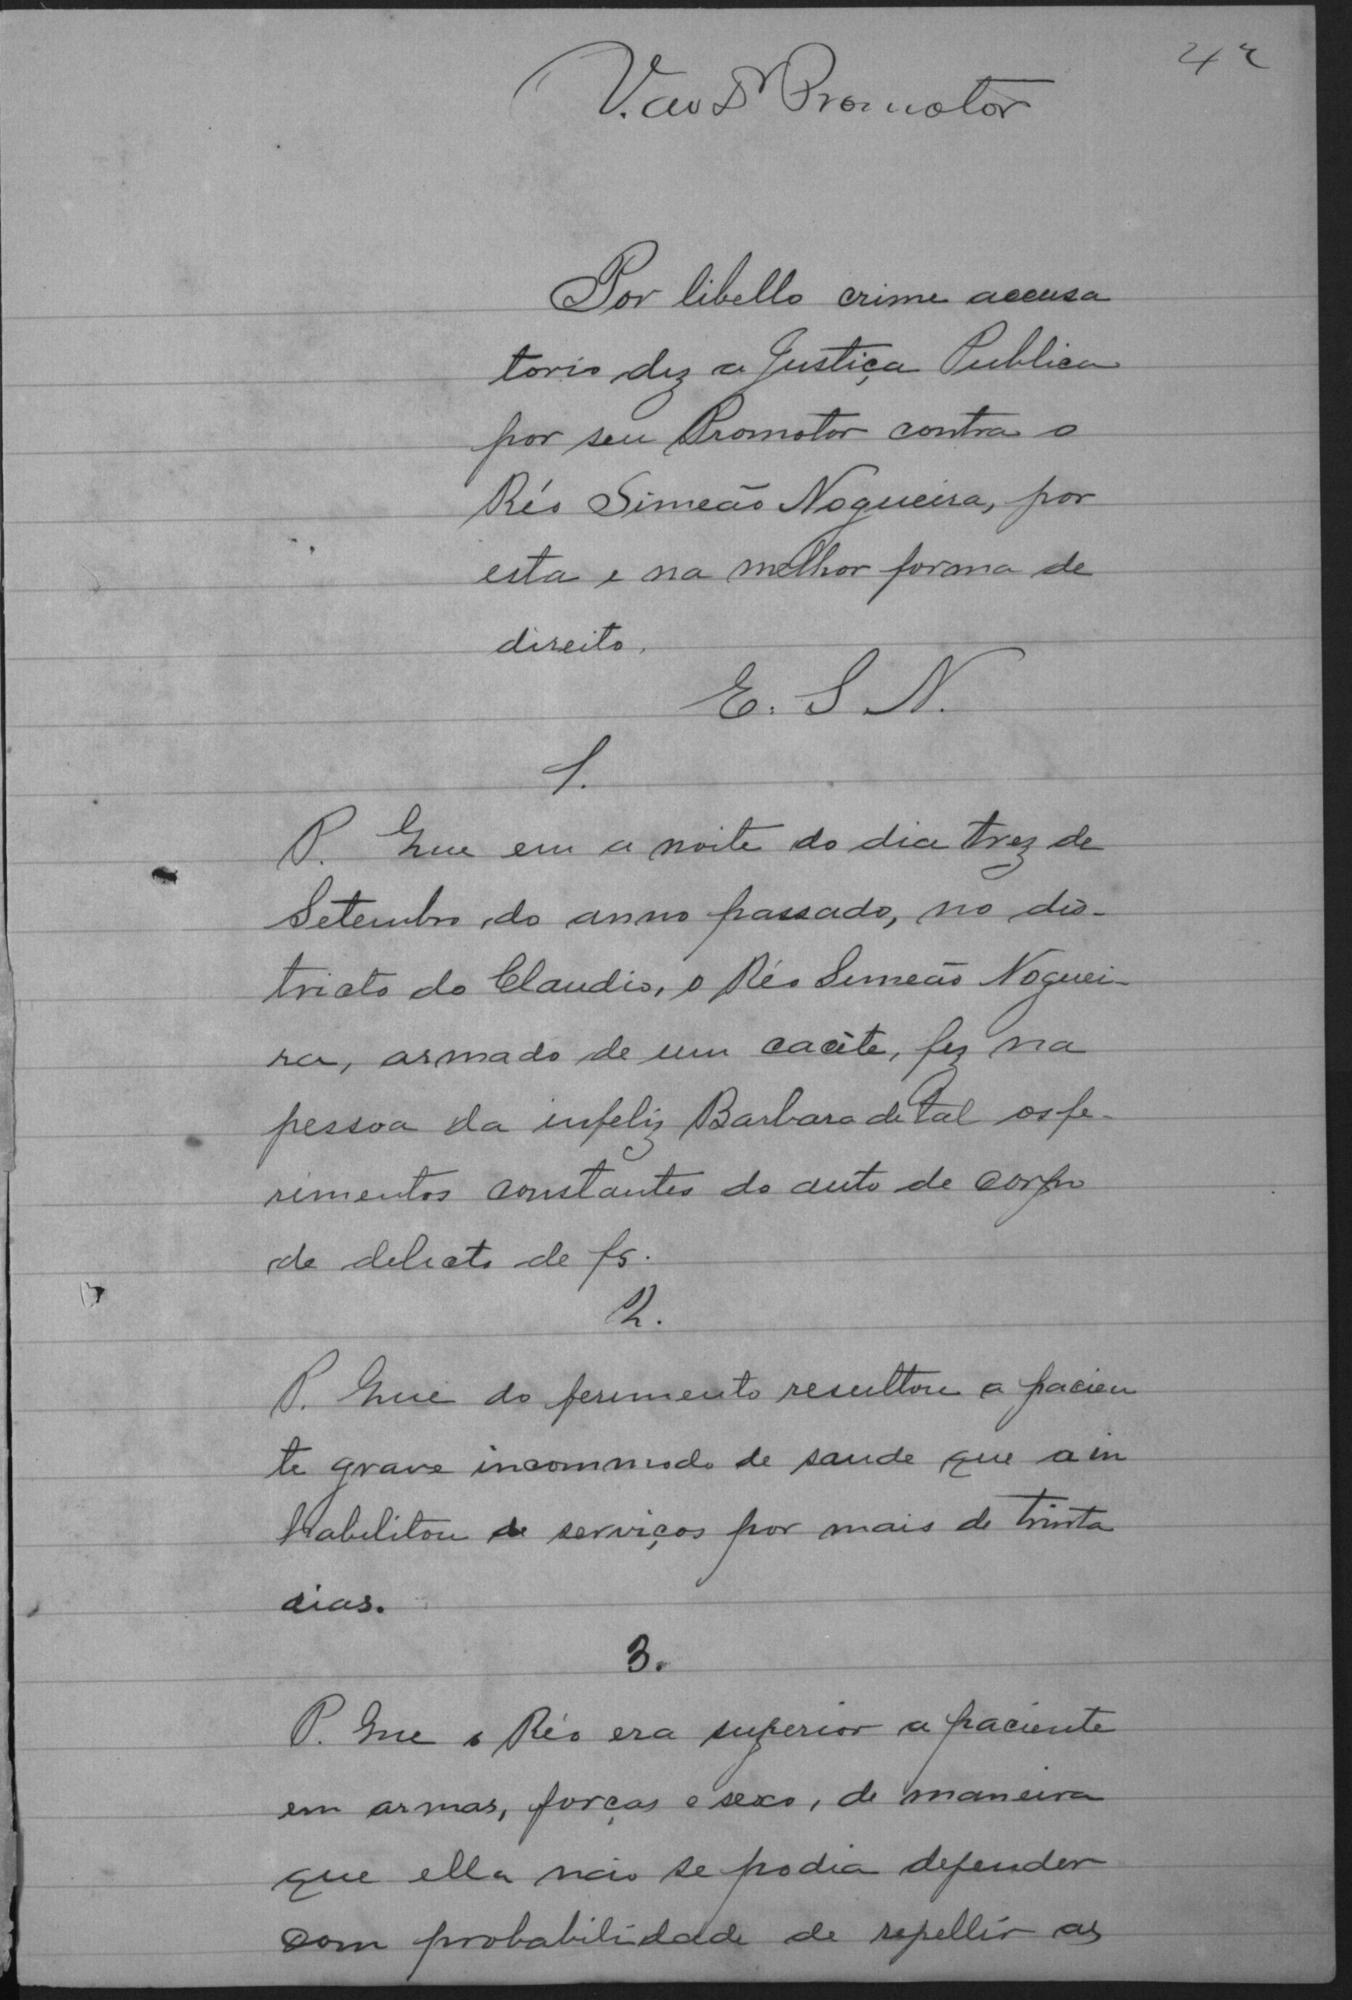 42
V. ao Dr Promotor
Por libello crime accusa
torio diz a Justiça Publica
por seu Promotor contra o
Réo Simeão Nogueira, por
esta e na melhor forma de
direito.
E. S. N.
1.
P. Que em a noite do dia trez de
Setembro do anno passado, no dis-
tricto do Claudio, o Réo Simeão Noguei-
ra, armado de um cacête, fez na
pessoa da infeliz Barbara de tal os fe-
rimentos constantes do auto de corpo
de delicto de fs.
2.
P. Que do ferimento resultou a pacien
te grave incommodo de saude que a in
habilitou de serviços por mais de trinta
dias.
3.
P. Que o Réo era superior a paciente
em armas, forças e sexo, de maneira
que ella não se podia defender
com probabilidade de repellir as